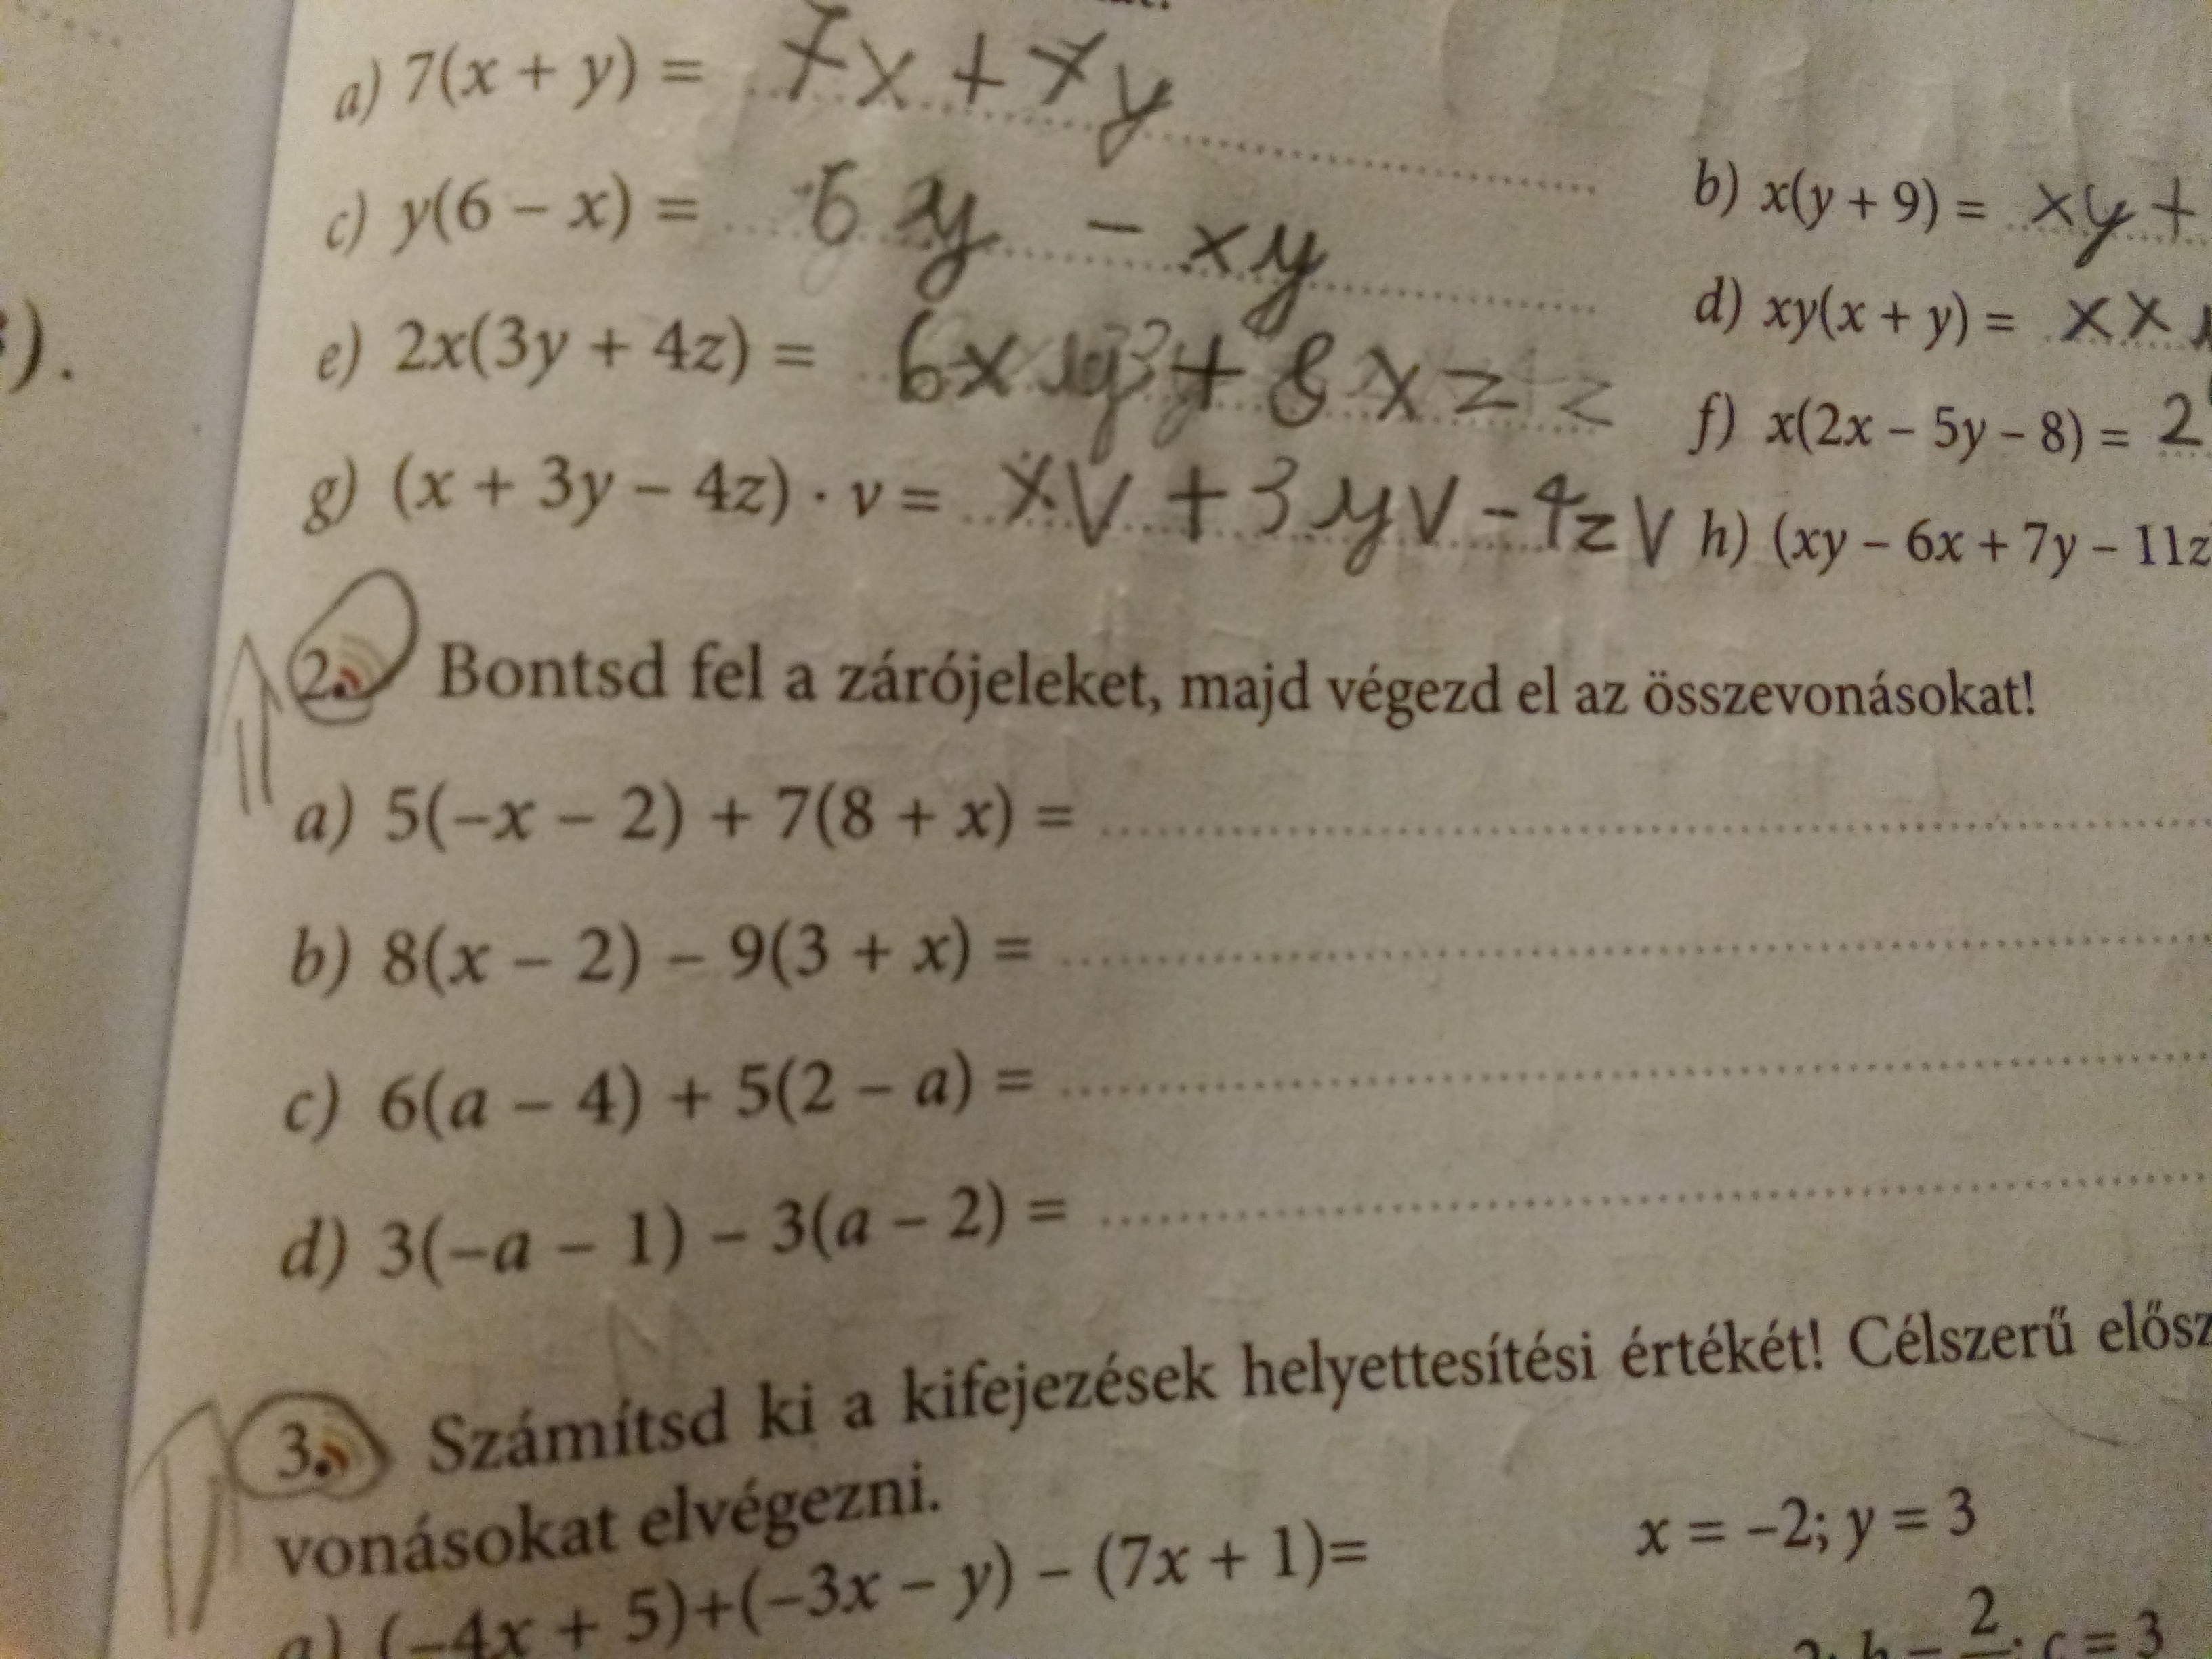 a) 7(x + y) = 7x + 7y
b) x(y + 9) = xy +
c) y(6 – x) = 6y – xy
d) xy(x + y) = xx
e) 2x(3y + 4z) = 6xy + 8xz z
f) x(2x – 5y – 8) = 2
g) (x + 3y – 4z) · v = xv + 3yv – 4zv
h) (xy – 6x + 7y – 11z
2. Bontsd fel a zárójeleket, majd végezd el az összevonásokat!
a) 5(–x – 2) + 7(8 + x) =
b) 8(x – 2) – 9(3 + x) =
c) 6(a – 4) + 5(2 – a) =
d) 3(–a – 1) – 3(a – 2) =
3. Számítsd ki a kifejezések helyettesítési értékét! Célszerű elősz
vonásokat elvégezni.
a) (–4x + 5)+(–3x – y) – (7x + 1)= x = –2; y = 3
c = 3